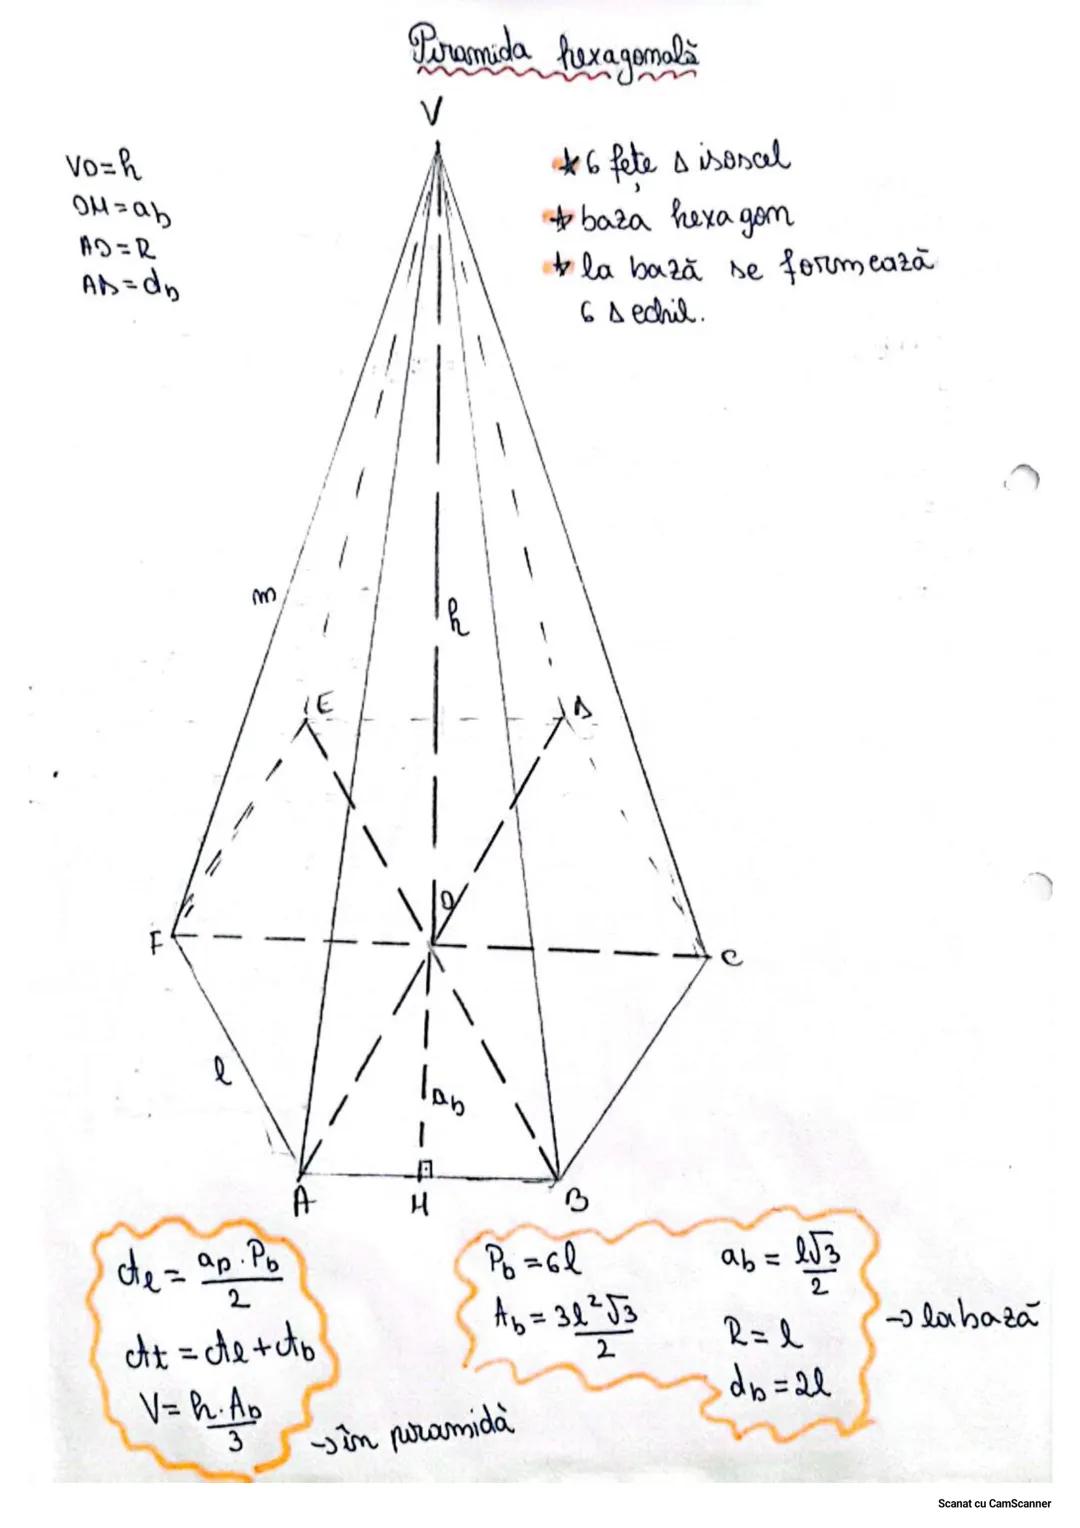 Piramida hexagonală
V
VO=h
OM=ab
AO=R
AD=db
* 6 fețe Δ isoscel
* baza hexagon
* la bază se formează
6 Δ echil.
m
h
E
D
O
F
C
l
ab
A
M
B
Al = ap·Pb/2
At = Al + Ab
V = h·Ab/3
→ în piramidă
Pb = 6l
Ab = 3l²√3/2
ab = l√3/2
R = l
db = 2l
→ la bază
Scanat cu CamScanner